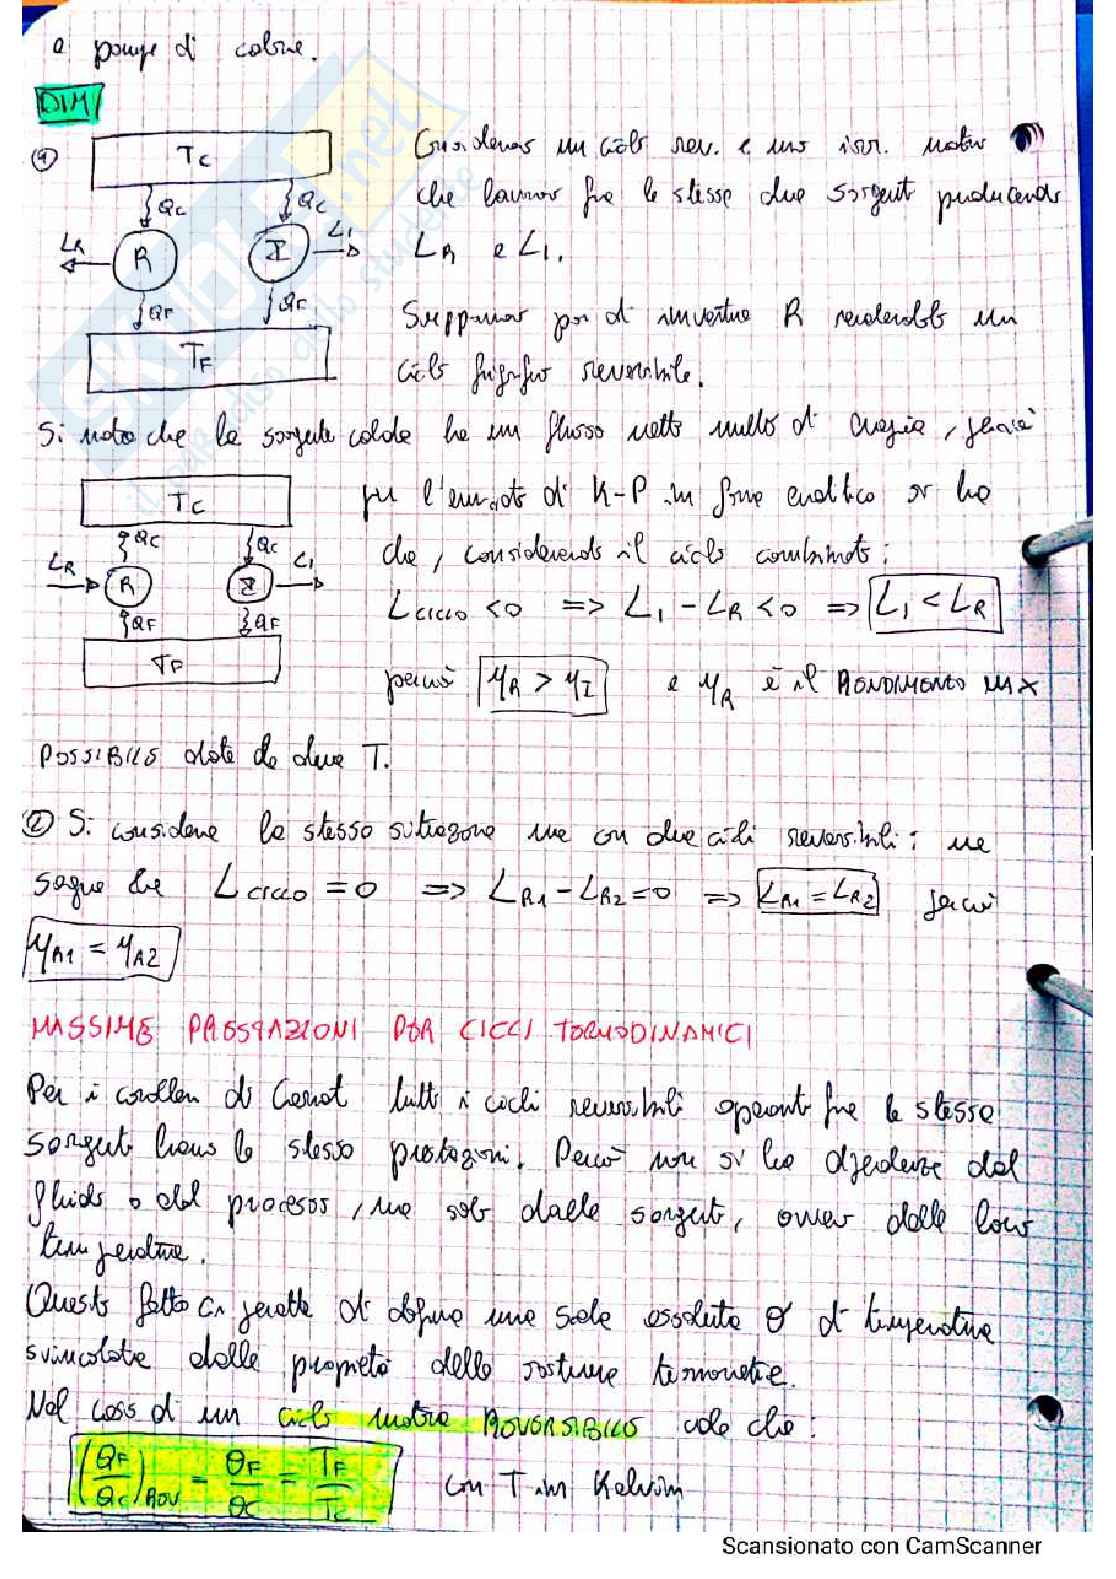 e pompe di calore.
DIM/
① Tc Consideriamo un ciclo rev. e uno irr. motori
Qc Qc che lavorano fra le stesse due sorgenti producendo
LR R I LI LR e LI.
QF QF Supponiamo poi di invertire R rendendolo un
TF ciclo frigorifero reversibile.
Si nota che la sorgente calda ha un flusso netto nullo di energia, perciò
Tc per l'enunciato di K-P in forma analitica si ha
Qc Qc che, considerando il ciclo combinato:
LR R I LI L ciclo <0 => LI - LR <0 => LI < LR
QF QF
TF perciò ηR > ηI e ηR è il RENDIMENTO MAX
POSSIBILE date le due T.
② Si considera la stessa situazione ma con due cicli reversibili: ne
segue che L ciclo =0 => LR1 - LR2 =0 => LR1 = LR2 perciò
ηR1 = ηR2
MASSIME PRESTAZIONI PER CICLI TERMODINAMICI
Per i corollari di Carnot tutti i cicli reversibili operanti fra le stesse
sorgenti hanno le stesse prestazioni. Perciò non si ha dipendenza dal
fluido o dal processo, ma solo dalle sorgenti, ovvero dalle loro
temperature.
Questo fatto ci permette di definire una scala assoluta θ di temperatura
svincolata dalle proprietà delle sostanze termometriche.
Nel caso di un ciclo motore REVERSIBILE vale che:
(QF/Qc)REV = θF/θC = TF/Tc con T in Kelvin
Scansionato con CamScanner